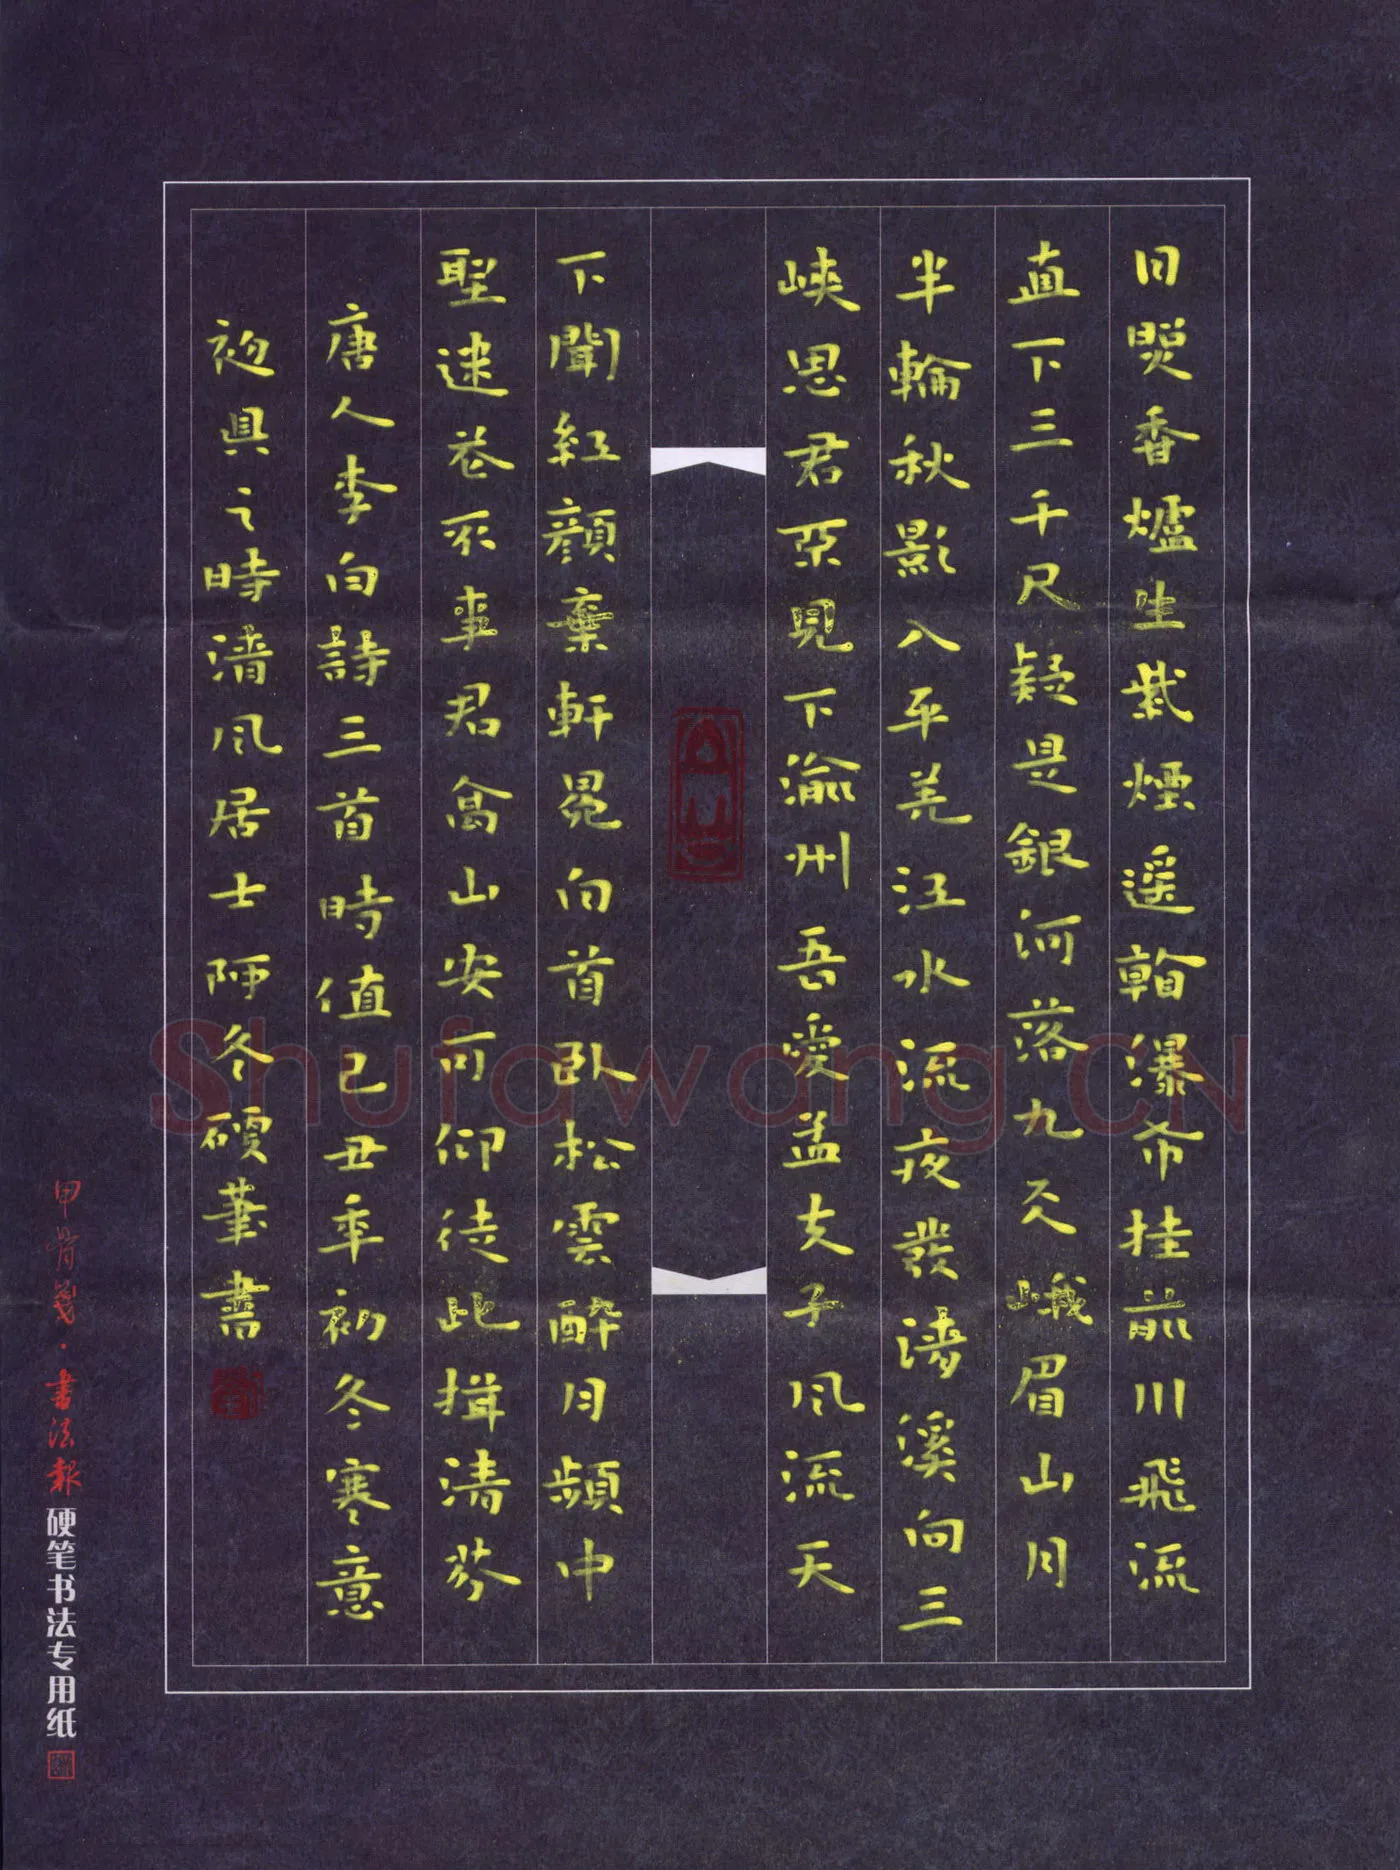 日照香爐生紫煙遥看瀑布挂前川飛流
直下三千尺疑是銀河落九天峨眉山月
半輪秋影入平羌江水流夜發清溪向三
峽思君不見下渝州吾愛孟夫子風流天
下聞紅顔棄軒冕白首卧松雲醉月頻中
聖迷花不事君高山安可仰徒此揖清芬
唐人李白詩三首時值己丑年初冬寒意
初具之時清風居士阿冬硬筆書
甲骨笺·書法報硬笔书法专用纸
Shufawang.CN